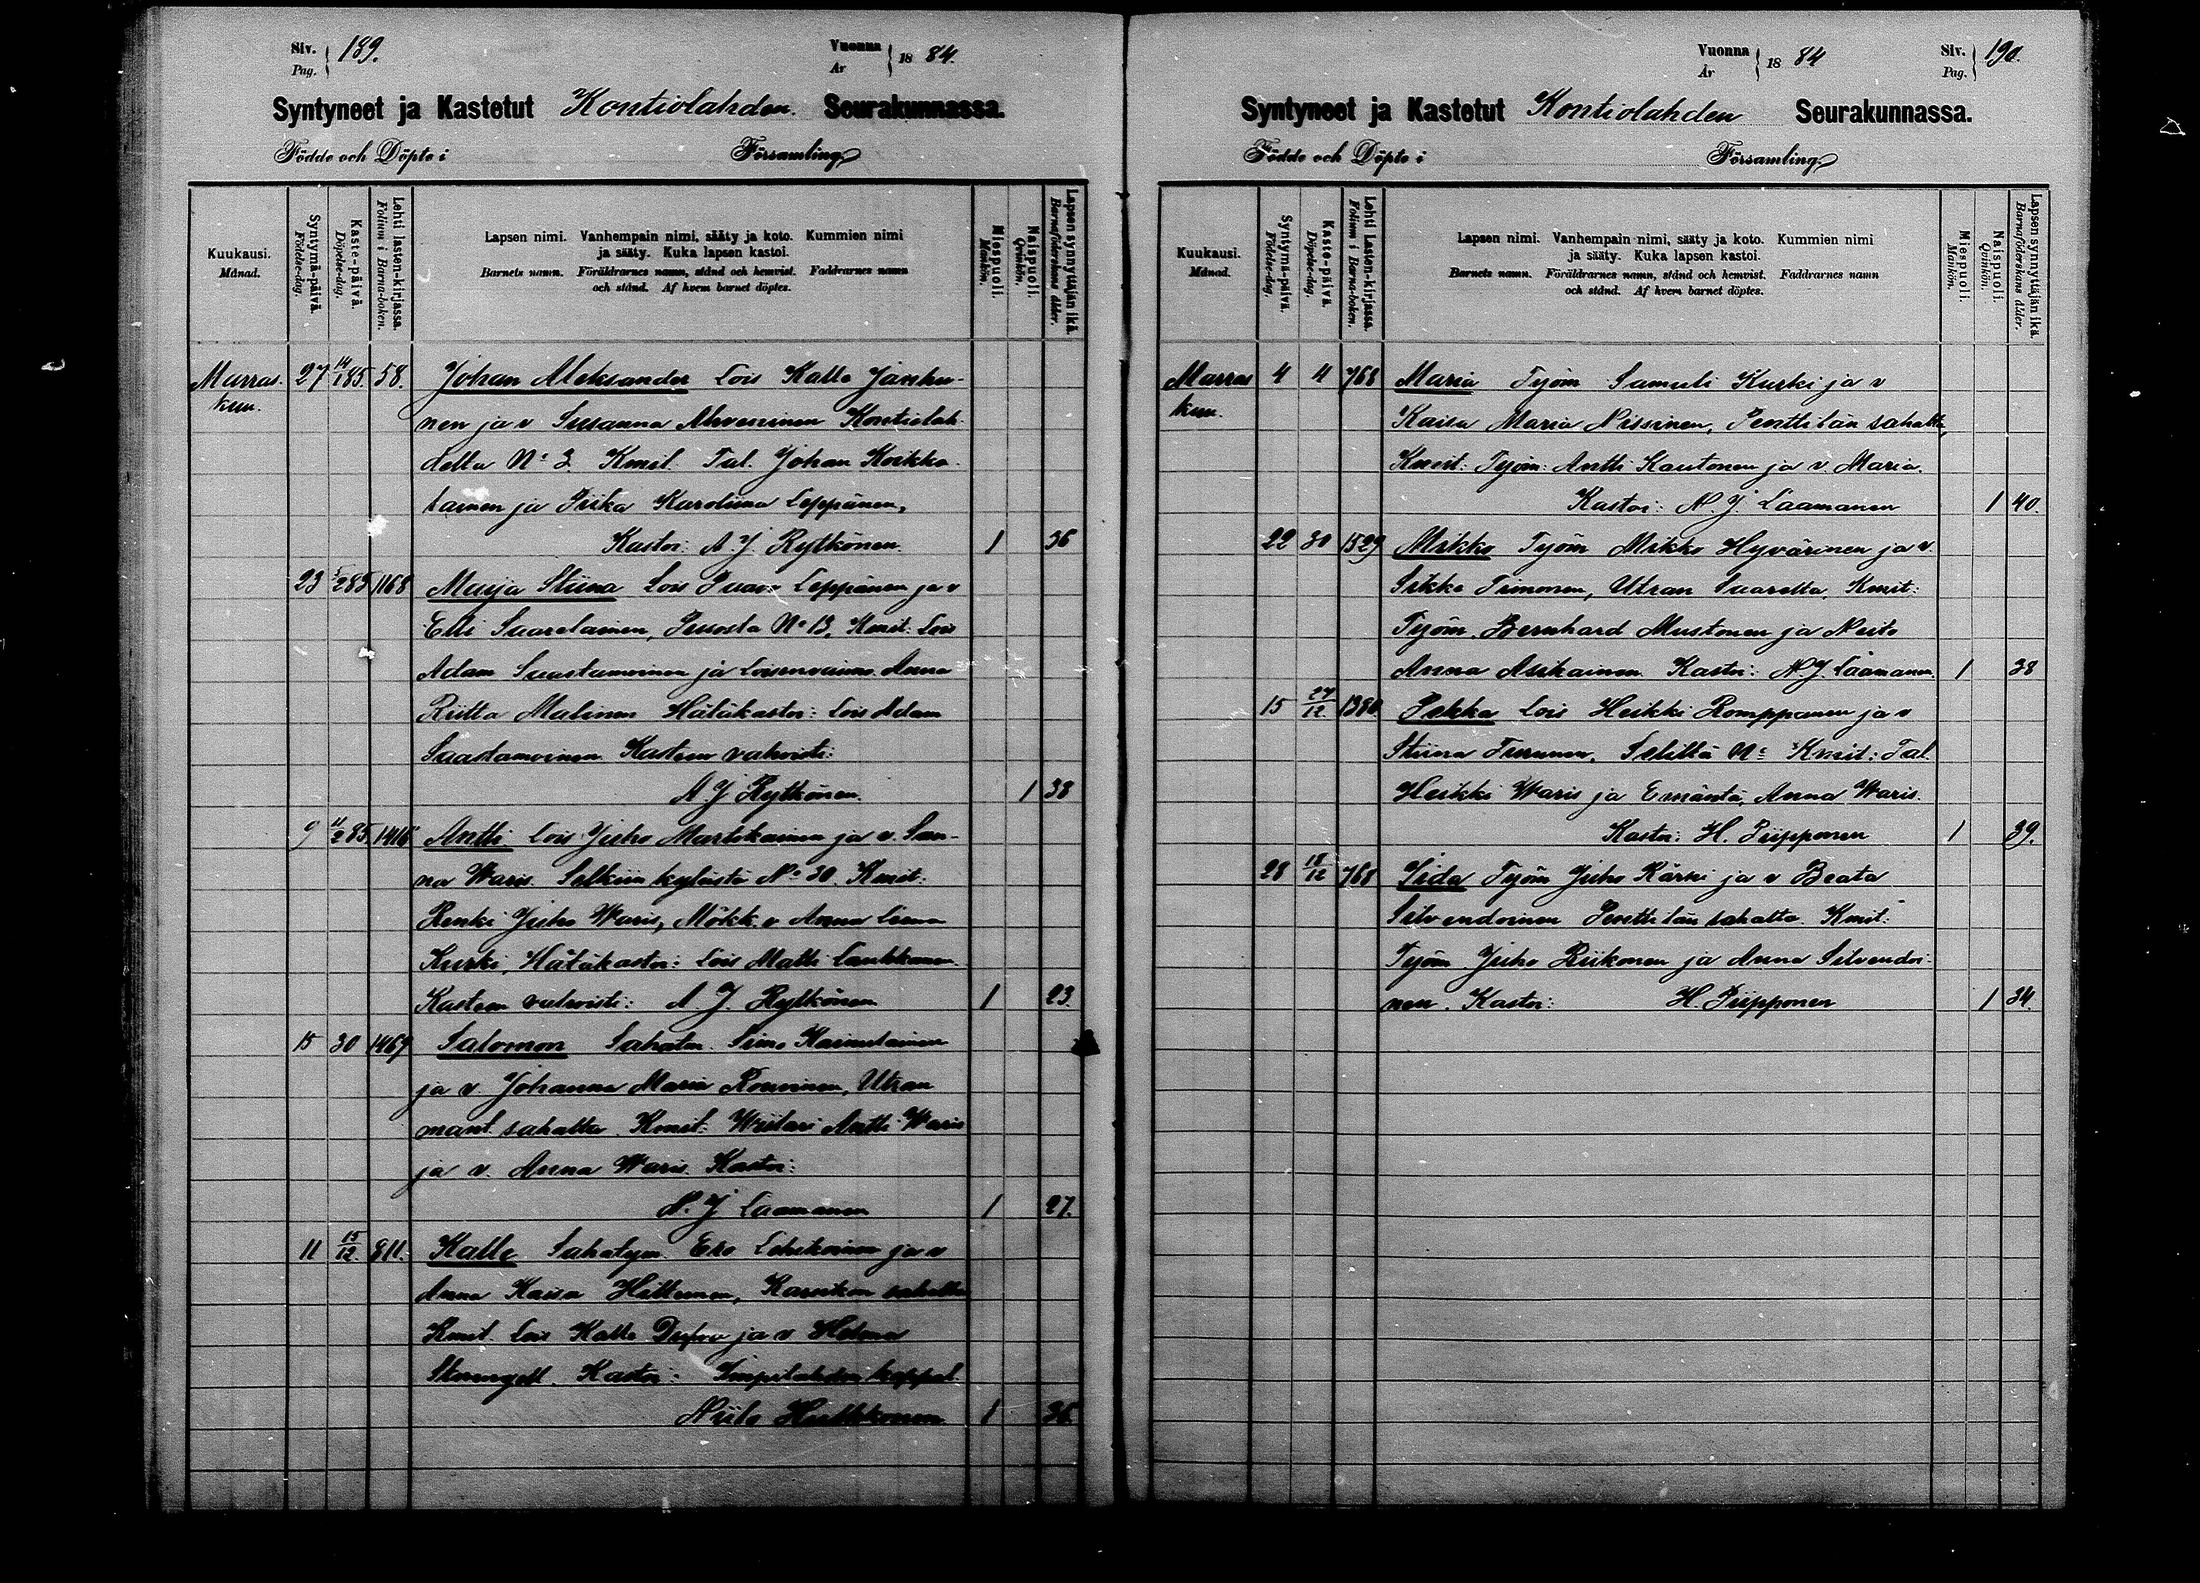 Siv. Pag. 189. Vuonna År 1884.
Syntyneet ja Kastetut Kontiolahden Seurakunnassa.
Födde och Döpte i Församling
Kuukausi. Månad.
Syntymä-päivä. Födelse-dag.
Kaste-päivä. Döpelse-dag.
Lehti lasten-kirjassa. Folium i Barna-boken.
Lapsen nimi. Vanhempain nimi, sääty ja koto. Kummien nimi
ja sääty. Kuka lapsen kastoi.
Barnets namn. Föräldrarnes namn, stånd och hemvist. Faddrarnes namn
och stånd. Af hvem barnet döptes.
Miespuoli. Mankön.
Naispuoli. Qvinkön.
Lapsen synnyttäjän ikä. Barnaföderskans ålder.
Marras- 27 14/1 85. 58. Johan Aleksander Lois Kalle Jänku-
kuu. nen ja v Susanna Ahveninen Kontiolah
della No 3. Kmit. Tal. Johan Koikka-
lainen ja Piika Karoliina Leppänen,
Kastoi: A. J. Rytkönen. 1 36
23 /2 85. 1168 Marja Stiina Lois Leppänen ja v
Elli No 13. Kmit: Lois
Adam Saastamoinen ja Loisenvaimo Anna
Riitta Malinen Hätäkastoi: Lois Adam
Saastamoinen. Kasteen vahvisti:
A. J. Rytkönen. 1 38
9 11/2 85. 1416 Antti Lois Juho Martikainen ja v. San-
na Waris. Selkien kylästä No 30. Kmit:
Renki Juho Waris, Mökk. v Anna Liena
Kurki, Hätäkastoi: Lois Matti Laukkanen.
Kasteen vahvisti: A. J. Rytkönen 1 23.
15 30 1469 Salomon Sahatm. Simo Karmilainen
ja v Johanna Maria Rouvinen, Utran
sahalta. Kmit: Wiilari Antti Waris
ja v. Anna Waris. Kastoi:
N. J. Laamanen 1 27.
11 15/12. 811. Kalle Sahatym. Ero Lehikoinen ja v
Anna Kaisa Hiltunen, sahalta
Kmit. Lois Kalle ja v Helena
Kastoi: Impilahden kappal.
Niilo Huttkonen 1 36.
Vuonna År 1884 Siv. Pag. 190.
Syntyneet ja Kastetut Kontiolahden Seurakunnassa.
Födde och Döpte i Församling
Kuukausi. Månad.
Syntymä-päivä. Födelse-dag.
Kaste-päivä. Döpelse-dag.
Lehti Lasten-kirjassa. Folium i Barna-boken.
Lapsen nimi. Vanhempain nimi, sääty ja koto. Kummien nimi
ja sääty. Kuka lapsen kastoi.
Barnets namn. Föräldrarnes namn, stånd och hemvist. Faddrarnes namn
och stånd. Af hvem barnet döptes.
Miespuoli. Mankön.
Naispuoli. Qvinkön.
Lapsen synnyttäjän ikä. Barnaföderskans ålder.
Marras 4 4 768 Maria Työm Samuli Kurki ja v
kuu. Kaisa Maria Nissinen, Penttilän sahalta,
Kmit: Työm: Antti Kautonen ja v. Maria.
Kastoi: N. J. Laamanen 1 40.
22 30 1529 Mikko Työm Mikko Hyvärinen ja v.
Sikke Timonen, Utran Saarelta. Kmit:
Työm. Bernhard Mustonen ja Neito
Anna Asikainen. Kastoi: N. J. Laamanen. 1 38
15 27/12. 1380 Pekka Lois Heikki Romppanen ja v
Stiina Turunen. No Kmit: Tal.
Heikki Waris ja Emäntä, Anna Waris.
Kastoi: H. Piipponen 1 39.
28 18/12 768 Iida Työm Juho Kärki ja v Beata
Silvendoinen Penttilän sahalta. Kmit:
Työm Juho Riikonen ja Anna Silvendoi-
nen. Kastoi: H. Piipponen 1 34.